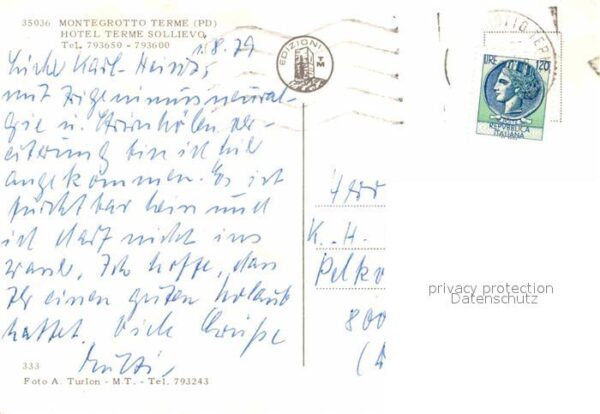 35036 MONTEGROTTO TERME (PD)
HOTEL TERME SOLLIEVO
Tel. 793650 - 793600
1.8.79
Liebe Karl-Heinz,
mit Trigeminusneural-
gie u. Stirnhöhlenver-
eiterung bin ich hier
angekommen. Es ist
furchtbar und
ich darf nicht ins
Ich hoffe, dass
Ihr einen guten Urlaub
hattet. Viele Grüße
Mutti
333
Foto A. Turlon - M.T. - Tel. 793243
EDIZIONI
TM
LIRE 120
POSTE
REPVBBLICA
ITALIANA
K. H.
800
privacy protection
Datenschutz